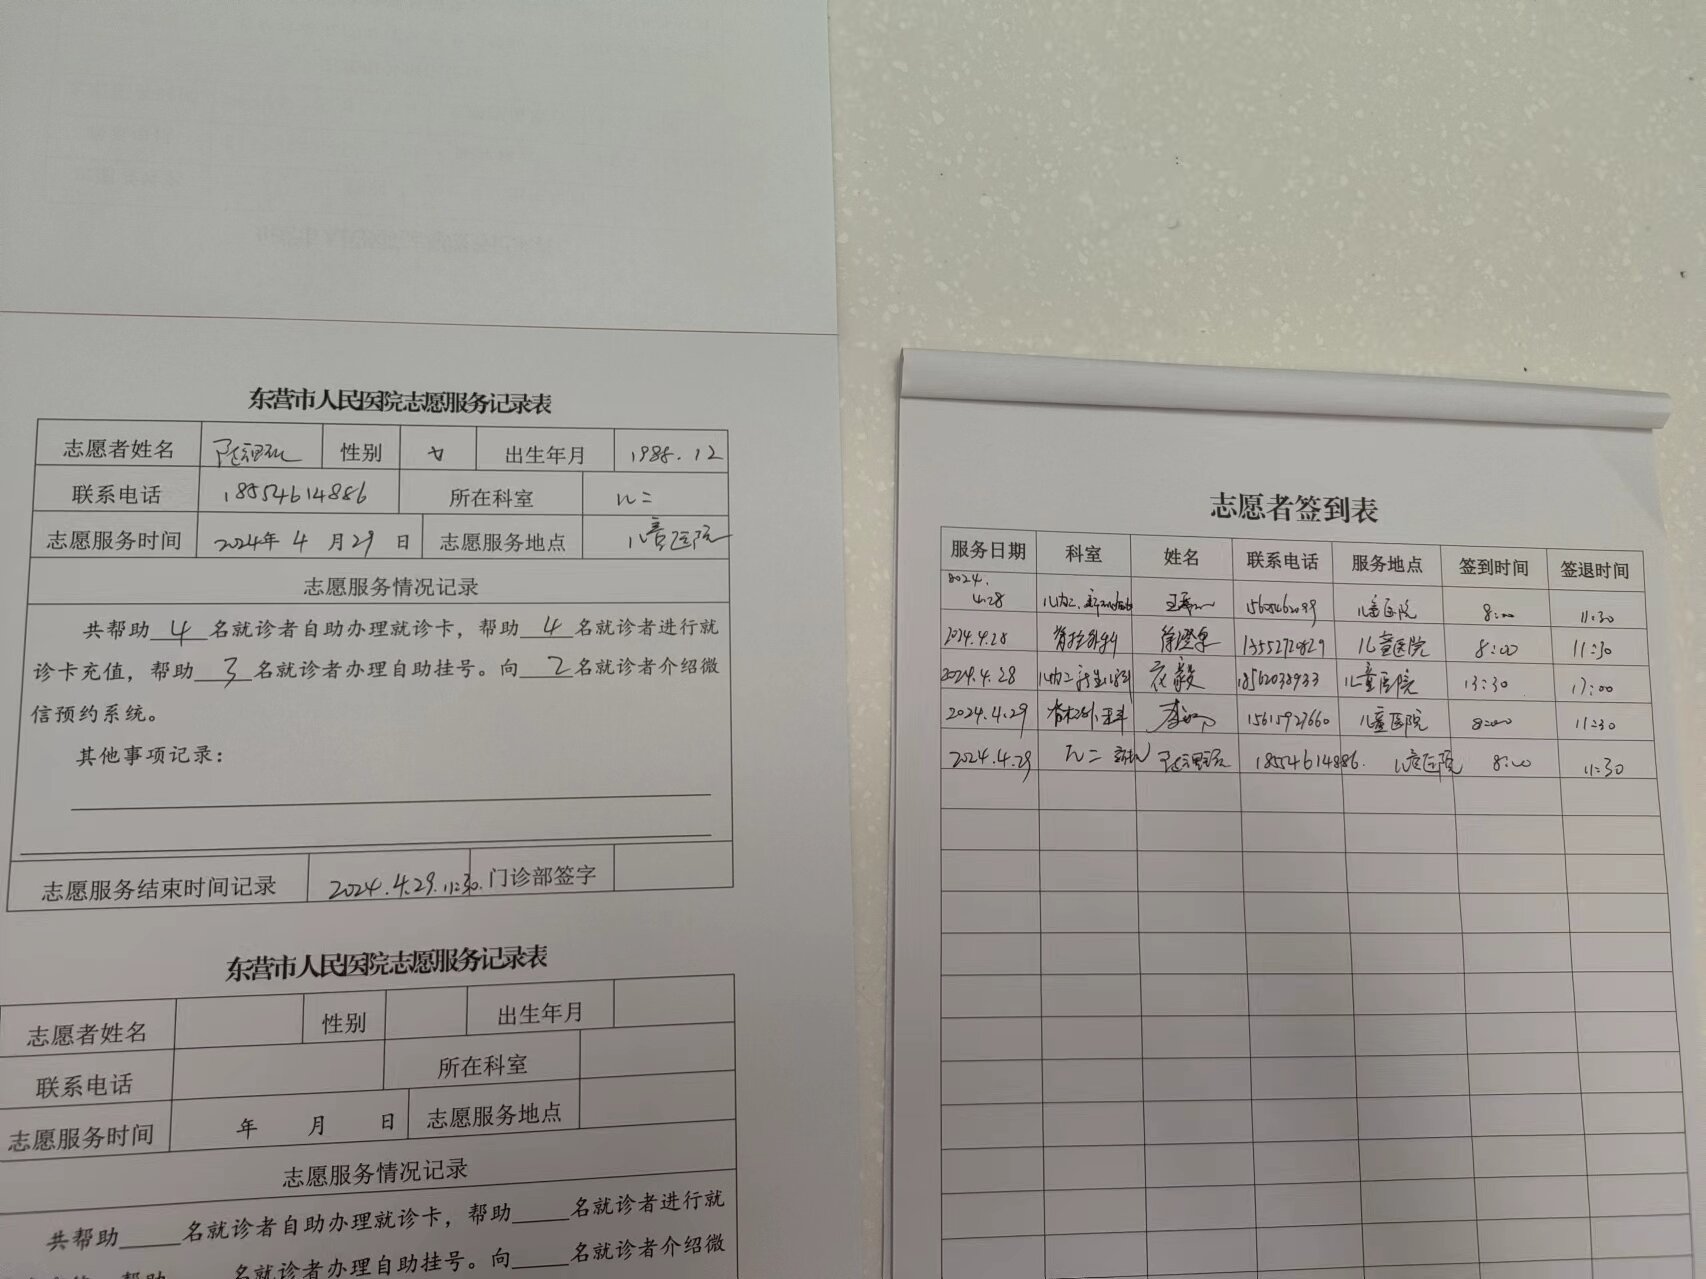 东营市人民医院志愿服务记录表
志愿者姓名 性别 女 出生年月 1988.12
联系电话 18554614886 所在科室 儿二
志愿服务时间 2024年 4 月29 日 志愿服务地点 儿童医院
志愿服务情况记录
共帮助 4 名就诊者自助办理就诊卡，帮助 4 名就诊者进行就
诊卡充值，帮助 3 名就诊者办理自助挂号。向 2 名就诊者介绍微
信预约系统。
其他事项记录：
志愿服务结束时间记录 2024.4.29.11:30. 门诊部签字
东营市人民医院志愿服务记录表
志愿者姓名 性别 出生年月
联系电话 所在科室
志愿服务时间 年 月 日 志愿服务地点
志愿服务情况记录
共帮助 名就诊者自助办理就诊卡，帮助 名就诊者进行就
帮助 名就诊者办理自助挂号。向 名就诊者介绍微
志愿者签到表
服务日期 科室 姓名 联系电话 服务地点 签到时间 签退时间
2024.
4.28 儿童医院 8:00 11:30
2024.4.28 儿童医院 8:00 11:30
2024.4.28 18562038933 儿童医院 13:30 17:00
2024.4.29 15615927660 儿童医院 8:00 11:30
2024.4.29 儿二 18554614886. 儿童医院 8:00 11:30